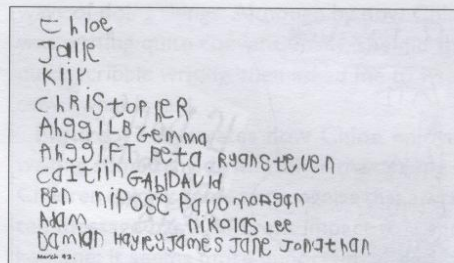 Chloe
Jalle
Kiip
ChRIStopHER
AhggILB Gemma
AhggIFT Peta Ryansteven
CaItiin GABIDAVId
Ben nipose payo morgan
Adam nikolas Lee
Damian HayleyJames Jane Jonathan
March 92.